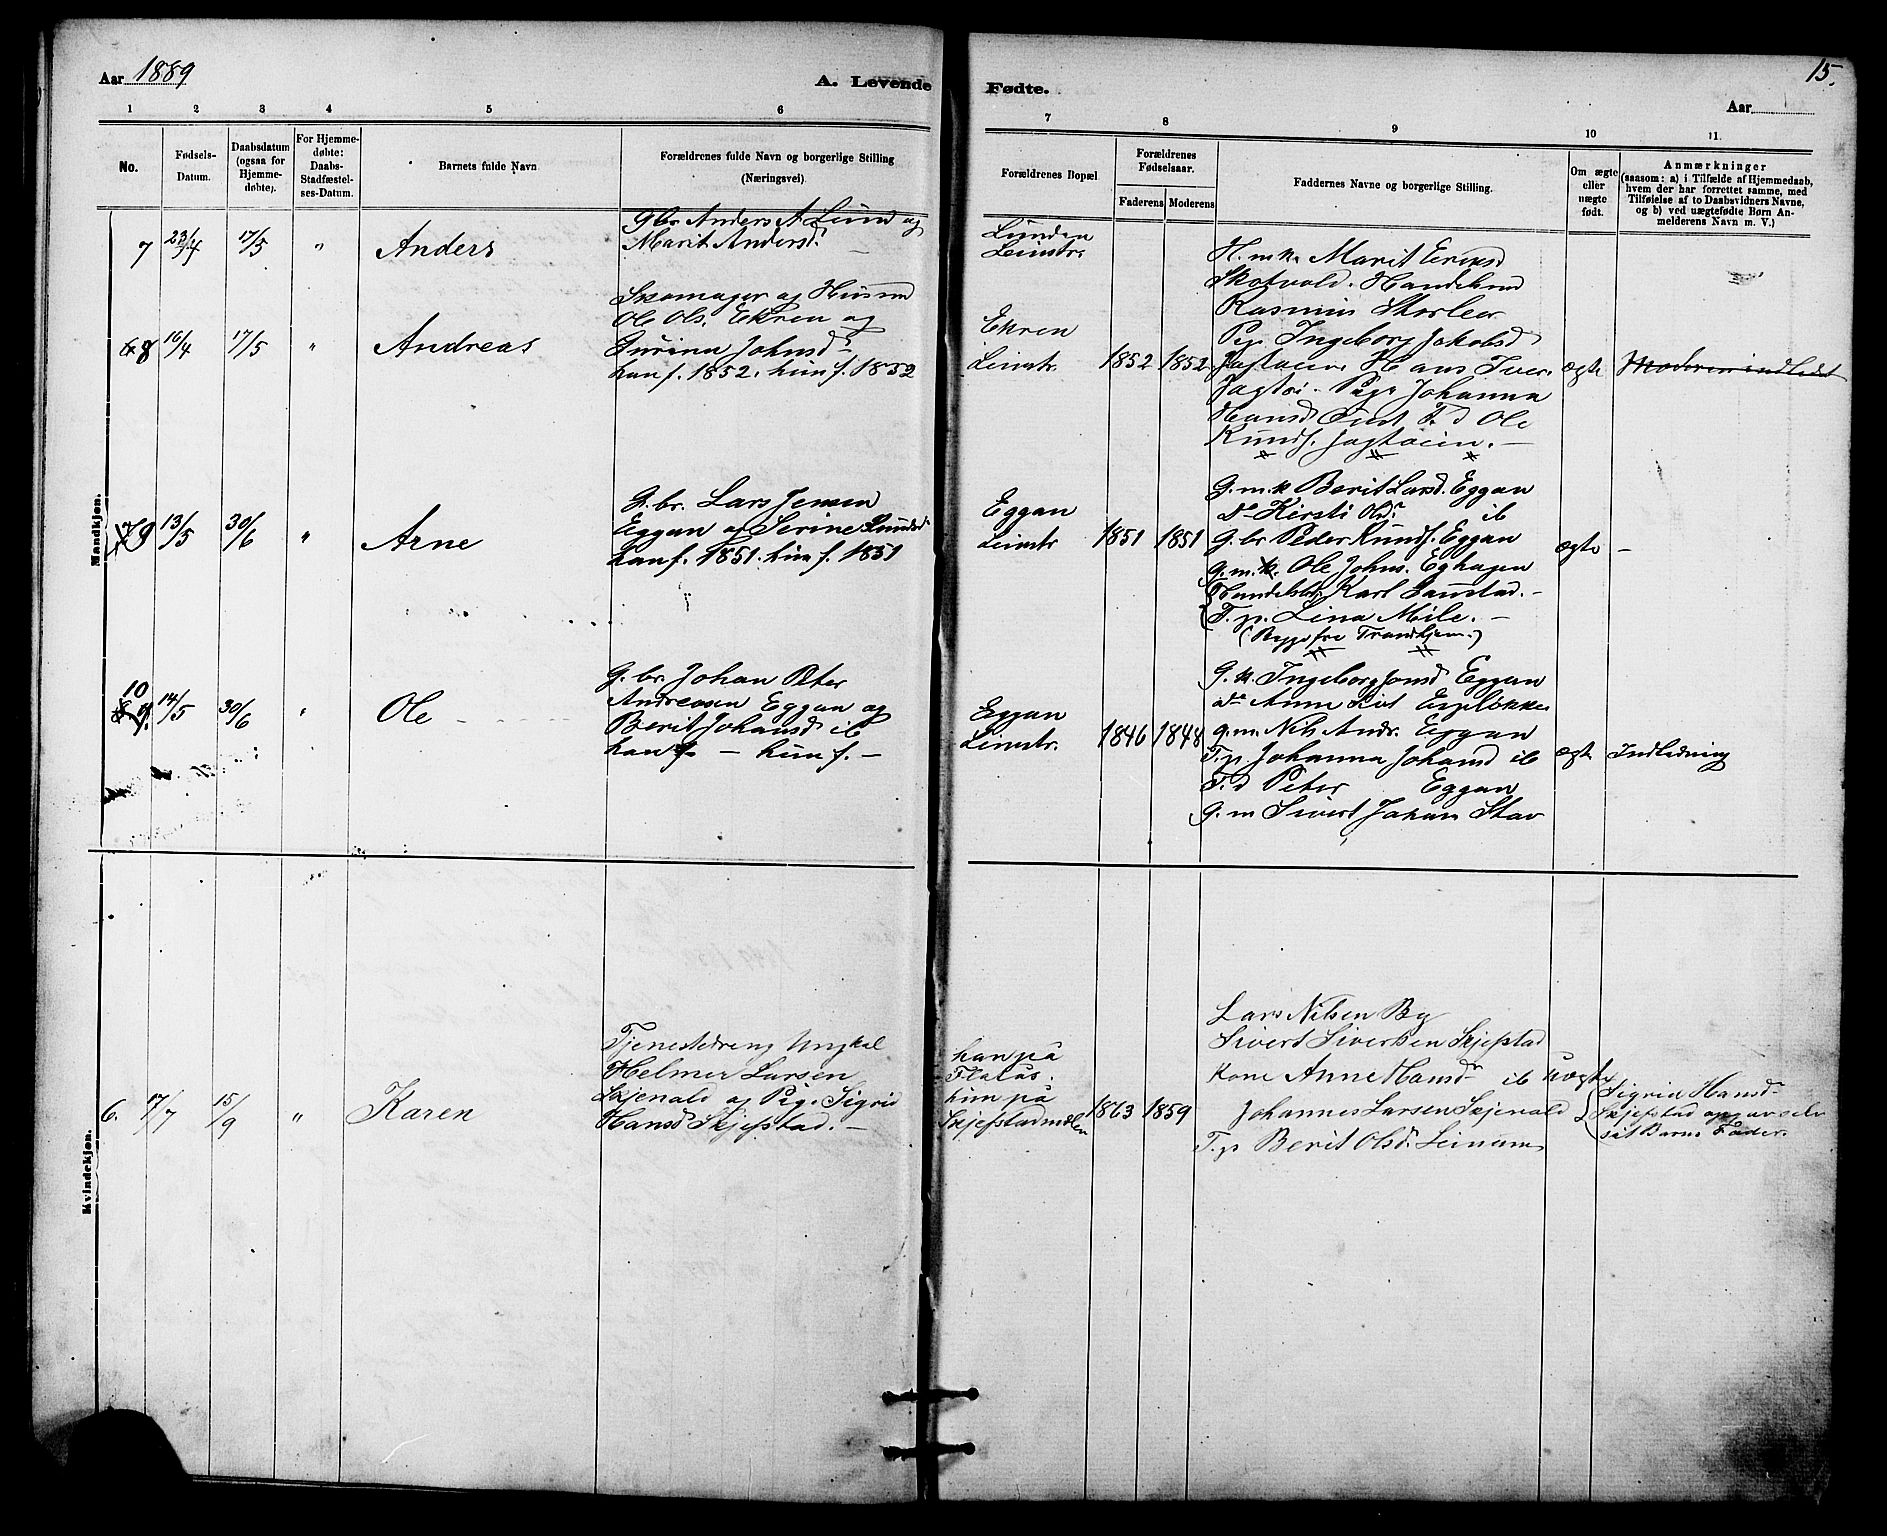 Aar 1889
A. Levende
1 2 3 4 5 6
No.
Fødsels-Datum.
Daabsdatum (ogsaa for Hjemmedøbte).
For Hjemmedøbte: Daabs-Stadfæstelses-Datum.
Barnets fulde Navn
Forældrenes fulde Navn og borgerlige Stilling
(Næringsvei).
Mandkjøn.
7 23/4 17/5 " Anders
Gbr Anders A Leim og
Marit Andersd.
8 16/4 17/5 " Andreas
Skomager og Husmd
Ole Ols. Ekren og
Johnsd
han f. 1852. hun f. 1852
9 13/5 30/6 " Arne
G.br. Lars Jensen
Eggan og Serine Knudsd
han f. 1851. hun f. 1851
10 14/5 30/6 " Ole
G.br. Johan Peter
Andreasen Eggan og
Berit Johansd ib
han f. — hun f. —
Kvindekjøn.
6. 17/7 15/9 " Karen
Tjenestedreng Ungkal
Helmer Larsen
Skjenald og Pig. Sigrid
Hansd Skjefstad. —
Fødte.
15.
Aar
7 8 9 10 11.
Forældrenes Bopæl
Forældrenes Fødselsaar.
Faderens Moderens
Faddernes Navne og borgerlige Stilling.
Om ægte eller uægte født.
Anmærkninger
(saasom: a) i Tilfælde af Hjemmedaab,
hvem der har forrettet samme, med
Tilføielse af to Daabsvidners Navne,
og b) ved uægtefødte Børn Anmelderens Navn m. V.)
Lunden
Leinstr.
H.m.k. Marit Eriksd
Skotvold. Handelsmd
Rasmus Storler
Ekren
Leinstr. 1852 1852
Pig. Ingeborg Jakobsd
Jagtøien Hans Iver.
Jagtøi. Pige Johanna
Hansd T.d Ole
Knuds. Jagtøien. —
ægte
Moderen indledet
Eggan
Leinstr 1851 1851
G.m.k Berit Larsd. Eggan
do Kirsti Olsd. ib
G.br Peder Knuds. Eggan
g.m.k. Ole Johns. Eghagen
Handelsbtj Karl Saustad. —
T.p. Lina Mile. —
(Begge fra Trondhjem.)
ægte —
Eggan
Leinstr. 1846 1848
G.k. Ingeborg Jonsd Eggan
do Anne Espeløkken
g.m. Nils Andr. Eggan
T.p Johanna Johansd ib
T.d Peter Eggan
g.m Sivert Johan Stav
ægte Indledning
han på
Flatås.
hun på
Skjefstadmdlen 1863 1859
Lars Nilsen By
Sivert Sivertsen Skjefstad
Kone Anne Hansdr ib
Johannes Larsen Skjenald
T.p Berit Olsd. Leinum
uægte
Sigrid Hansd
Skjefstad opgav selv
sit Barns Fader.